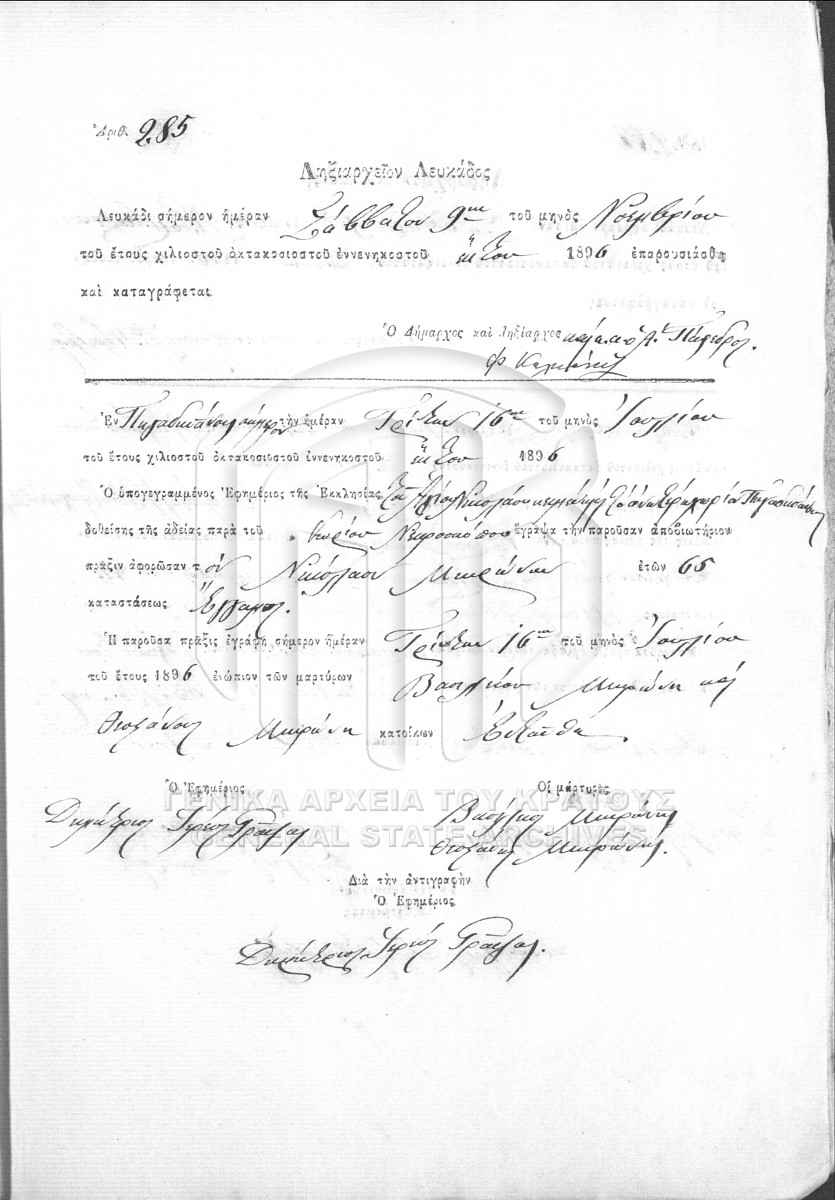 Ἀριθ. 285
Ληξιαρχεῖον Λευκάδος
Λευκάδι σήμερον ἡμέραν Σάββατον 9ην τοῦ μηνὸς Νοεμβρίου
τοῦ ἔτους χιλιοστοῦ ὀκτακοσιοστοῦ ἐννενηκοστοῦ ἕκτου 1896 ἐπαρουσιάσθη
καὶ καταγράφεται
Ὁ Δήμαρχος καὶ Ληξίαρχος κ. α. α. ὁ Α΄ Πάρεδρος
Φ
Ἐν σήμερον τὴν ἡμέραν Τρίτην 16ην τοῦ μηνὸς Ἰουλίου
τοῦ ἔτους χιλιοστοῦ ὀκτακοσιοστοῦ ἐννενηκοστοῦ ἕκτου 1896
Ὁ ὑπογεγραμμένος Ἐφημέριος τῆς Ἐκκλησίας τοῦ Ἁγίου Νικολάου
δοθείσης τῆς ἀδείας παρὰ τοῦ κυρίου ἔγραψα τὴν παροῦσαν ἀποβιωτήριον
πρᾶξιν ἀφορῶσαν τὸν Νικόλαον Μικρώνην ἐτῶν 65
καταστάσεως Ἔγγαμος.
Ἡ παροῦσα πρᾶξις ἐγράφη σήμερον ἡμέραν Τρίτην 16ην τοῦ μηνὸς Ἰουλίου
τοῦ ἔτους 1896 ἐνώπιον τῶν μαρτύρων Βασιλείου Μικρώνη καὶ
Θεοφάνους Μικρώνη κατοίκων Ἐνταῦθα.
Ὁ Ἐφημέριος
Οἱ μάρτυρες
Δημήτριος Ἱερεὺς
Βασίλειος Μικρώνης
Θεοφάνης Μικρώνης.
Διὰ τὴν ἀντιγραφὴν
Ὁ Ἐφημέριος
Δημήτριος Ἱερεὺς
ΓΕΝΙΚΑ ΑΡΧΕΙΑ ΤΟΥ ΚΡΑΤΟΥΣ
GENERAL STATE ARCHIVES